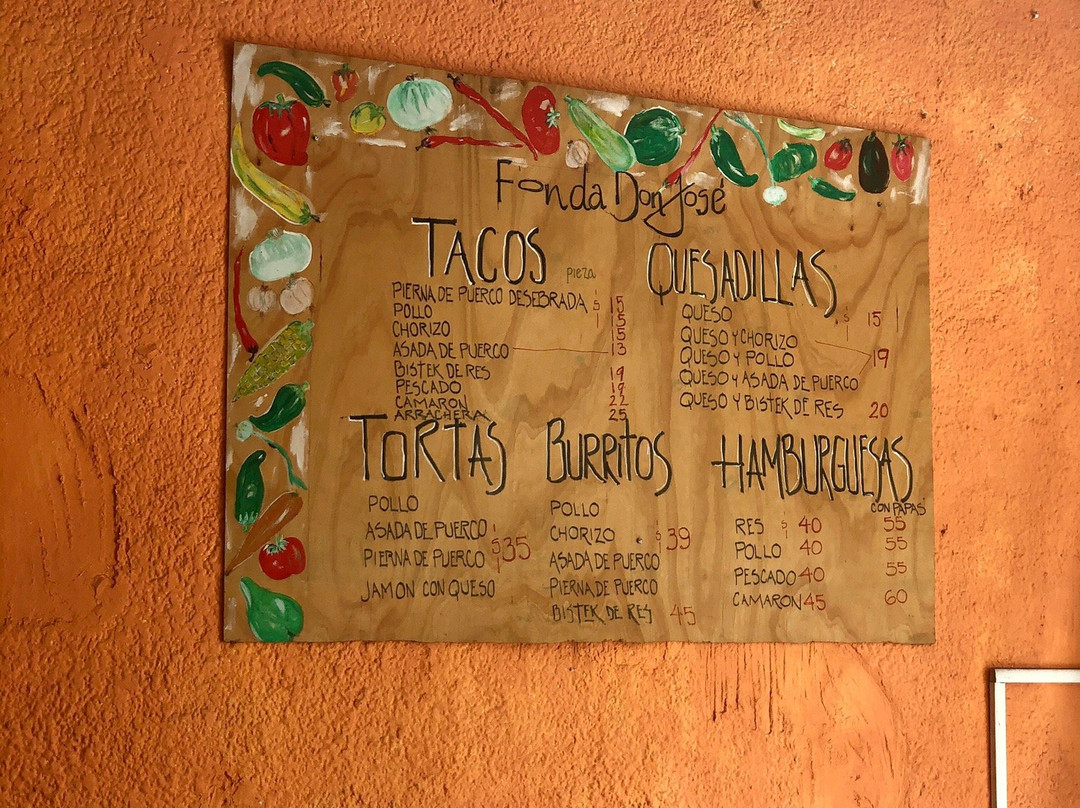 Fonda Don José
TACOS pieza
PIERNA DE PUERCO DESEBRADA $ 15
POLLO 15
CHORIZO 15
ASADA DE PUERCO 13
BISTEK DE RES 19
PESCADO 19
CAMARON 22
ARRACHERA 25
QUESADILLAS
QUESO $ 15
QUESO Y CHORIZO
QUESO Y POLLO 19
QUESO Y ASADA DE PUERCO
QUESO Y BISTEK DE RES 20
TORTAS
POLLO
ASADA DE PUERCO
PIERNA DE PUERCO $35
JAMON CON QUESO
BURRITOS
POLLO
CHORIZO $39
ASADA DE PUERCO
PIERNA DE PUERCO
BISTEK DE RES 45
HAMBURGUESAS
CON PAPAS
RES $ 40 55
POLLO 40 55
PESCADO 40 55
CAMARON 45 60